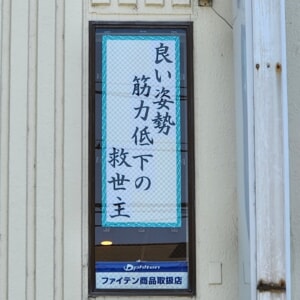 良い姿勢
筋力低下の
救世主
phiten
ファイテン商品取扱店